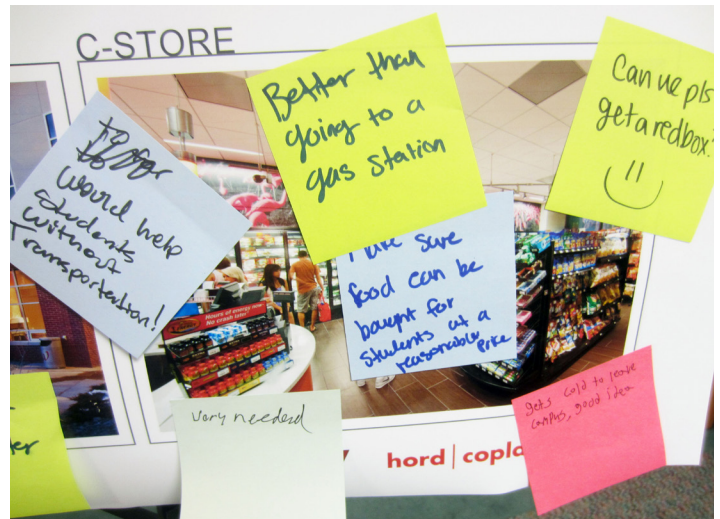 C-STORE
Better than
going to a
gas station
Can we pls
get a redbox?
would help
students
without
Transportation!
sure
food can be
bought for
students at a
reasonable Price
Hours of energy now
No crash later
very needed
gets cold to leave
campus, good idea
hord | copla